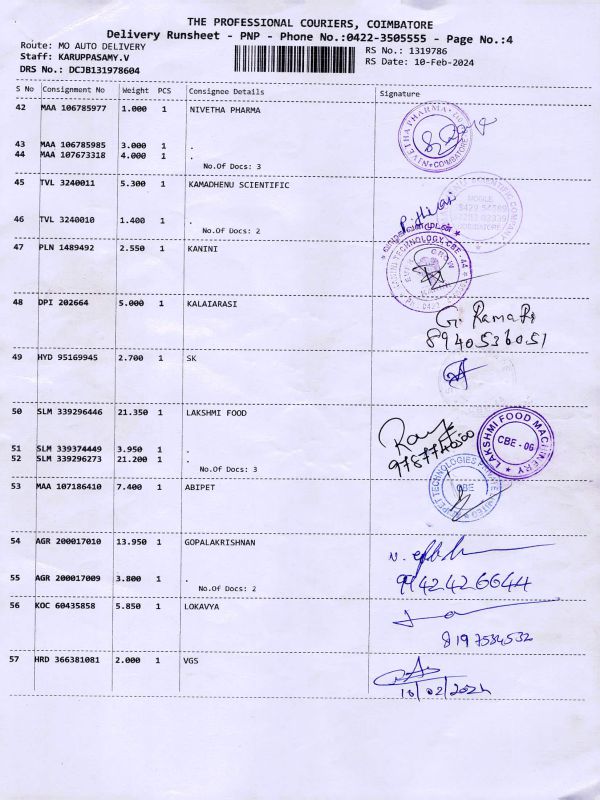 THE PROFESSIONAL COURIERS, COIMBATORE
Delivery Runsheet - PNP - Phone No.:0422-3505555 - Page No.:4
Route: MO AUTO DELIVERY
RS No.: 1319786
Staff: KARUPPASAMY.V
RS Date: 10-Feb-2024
DRS No.: DCJB131978604
S No Consignment No Weight PCS Consignee Details Signature
42 MAA 106785977 1.000 1 NIVETHA PHARMA
43 MAA 106785985 3.000 1 .
44 MAA 107673318 4.000 1 .
No.Of Docs: 3
45 TVL 3240011 5.300 1 KAMADHENU SCIENTIFIC
46 TVL 3240010 1.400 1 .
No.Of Docs: 2
47 PLN 1489492 2.550 1 KANINI
வாழ்கவளமுடன்
48 DPI 202664 5.000 1 KALAIARASI
G. Rama
8940536051
49 HYD 95169945 2.700 1 SK
50 SLM 339296446 21.350 1 LAKSHMI FOOD
LAKSHMI FOOD MACHINERY
CBE - 06
51 SLM 339374449 3.950 1 .
52 SLM 339296273 21.200 1 .
No.Of Docs: 3
53 MAA 107186410 7.400 1 ABIPET
CBE
54 AGR 200017010 13.950 1 GOPALAKRISHNAN
55 AGR 200017009 3.800 1 .
9942426644
No.Of Docs: 2
56 KOC 60435858 5.850 1 LOKAVYA
8197534532
57 HRD 366381081 2.000 1 VGS
10/02/2024